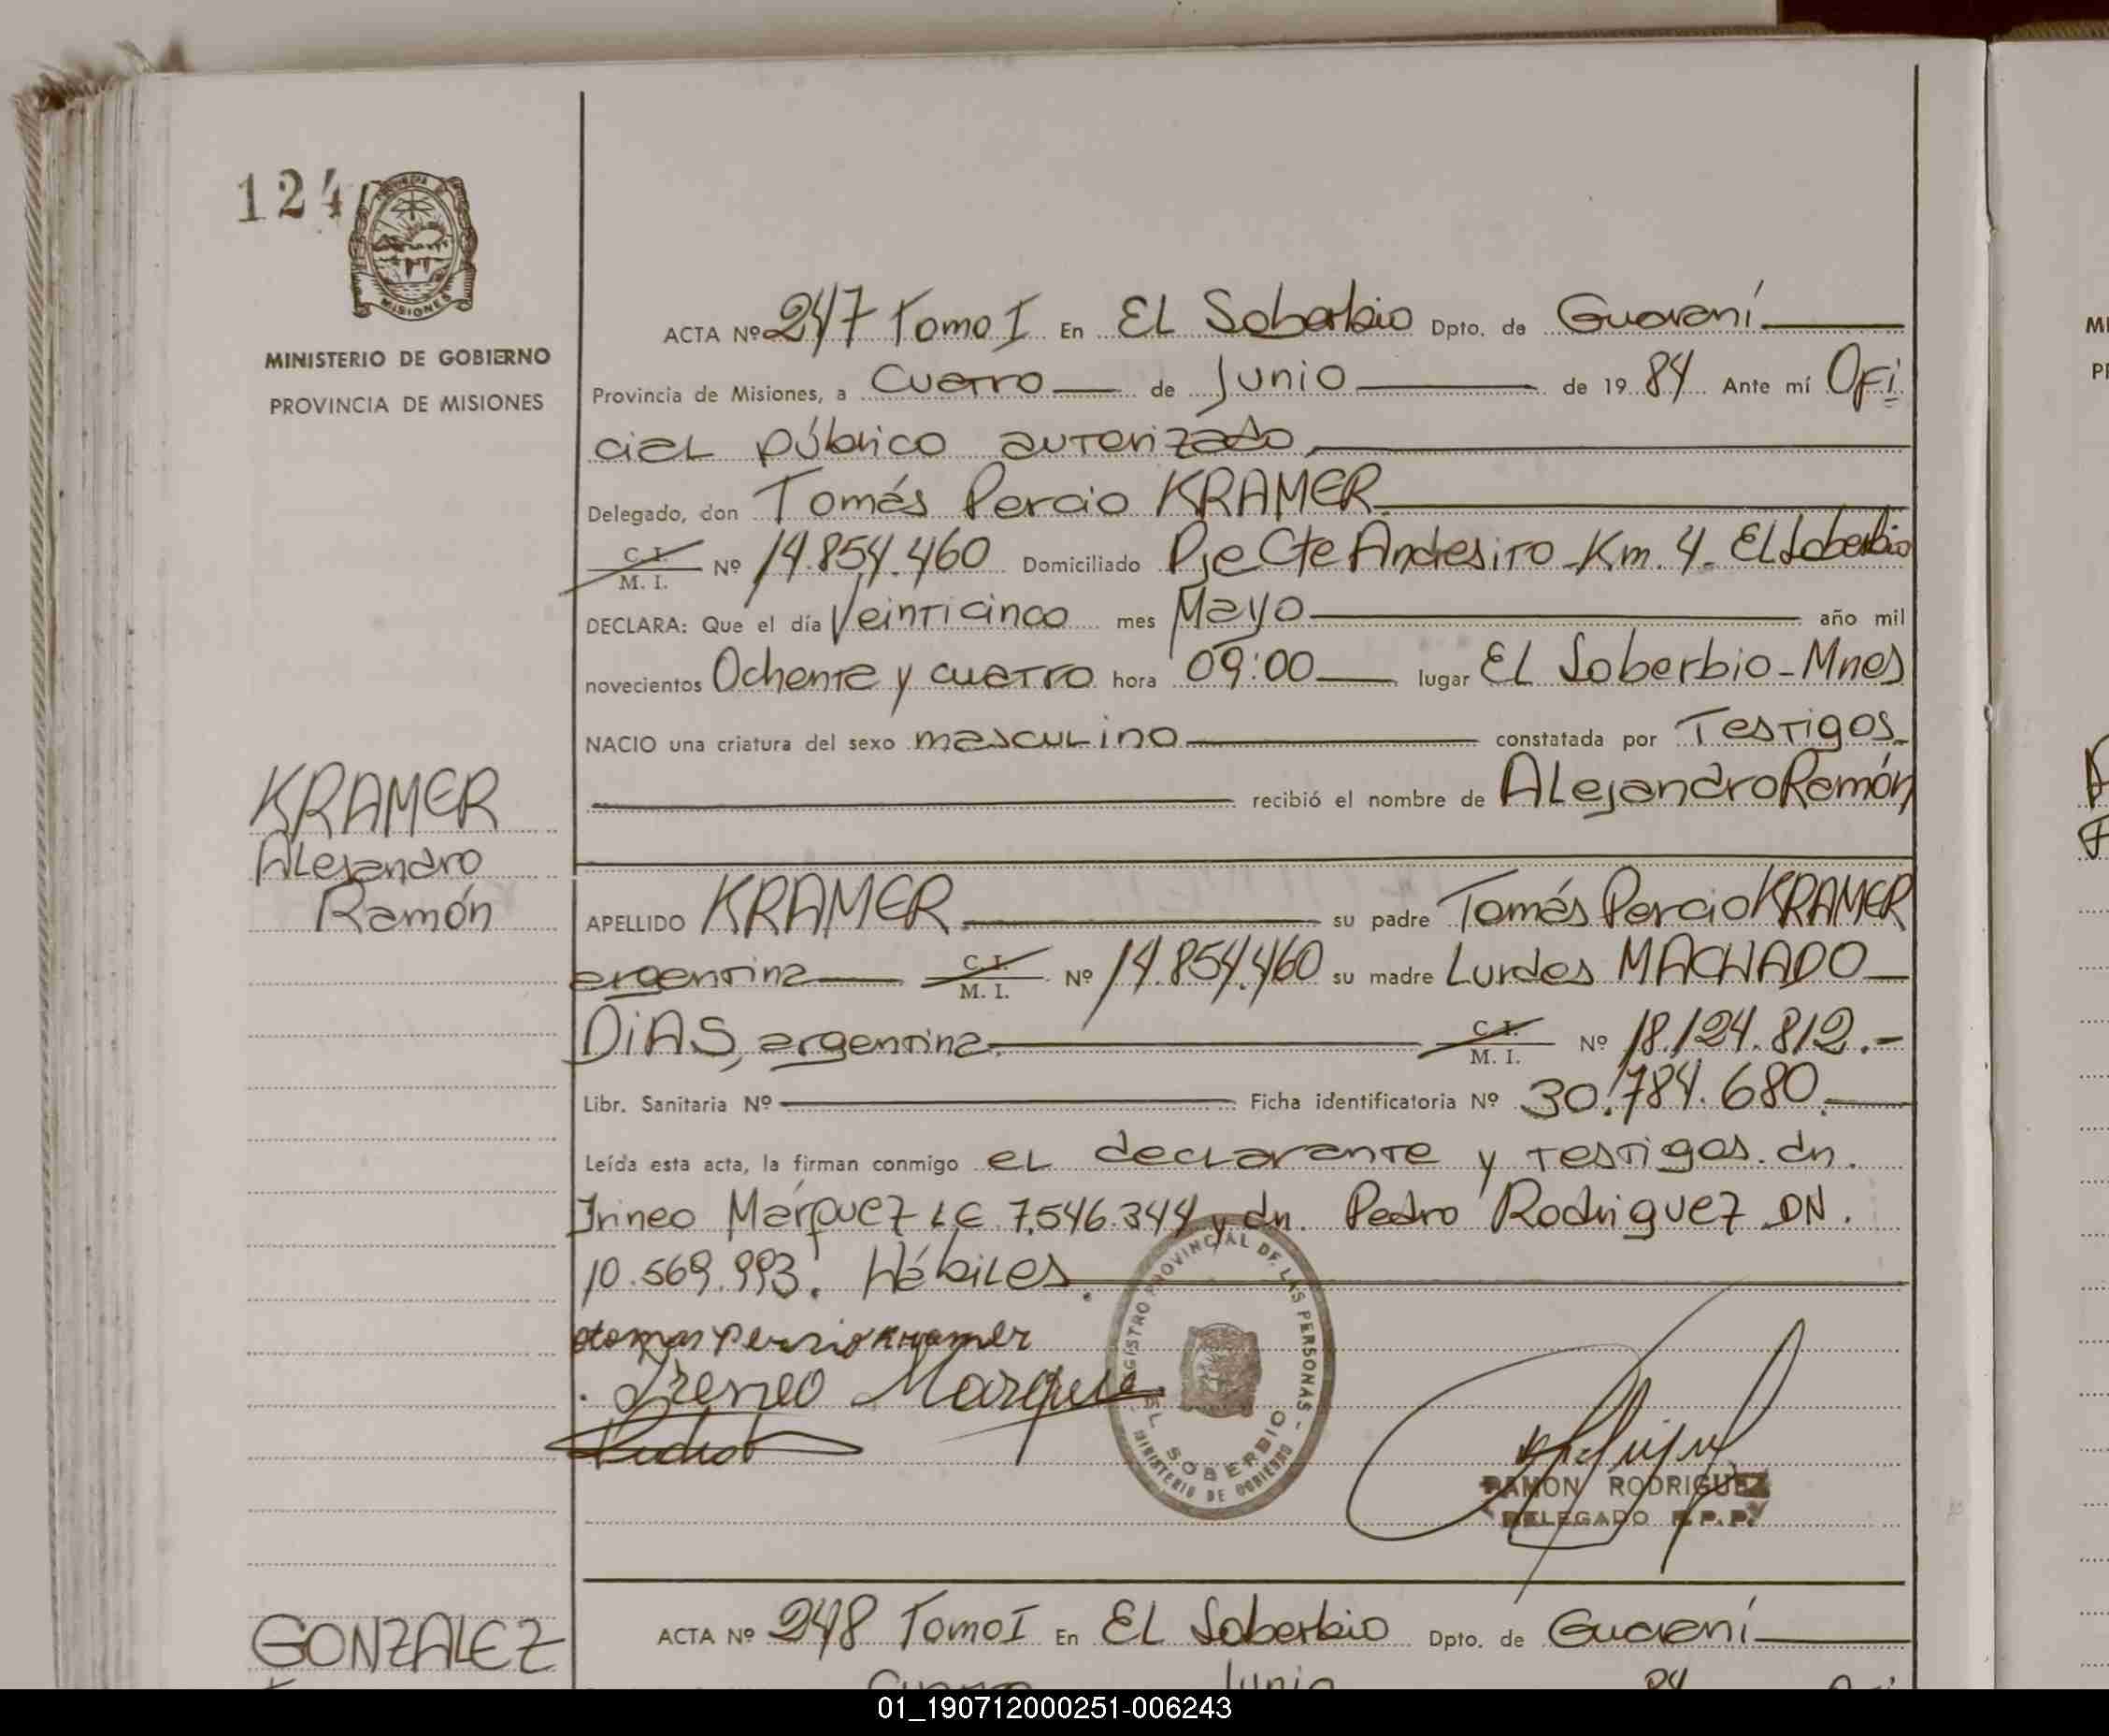 124
MISIONES
MINISTERIO DE GOBIERNO
PROVINCIA DE MISIONES
ACTA Nº 247 Tomo I En EL Soberbio Dpto. de Guaraní
Provincia de Misiones, a cuatro de Junio de 19 84 Ante mí Ofi
cial público autorizado,
Delegado, don Tomás Percio KRAMER
C. I. M. I. Nº 14.854.460 Domiciliado Pje Cte Andresito Km. 4. El Soberbio
DECLARA: Que el día Veinticinco mes Mayo año mil
novecientos Ochenta y cuatro hora 09:00 lugar EL Soberbio-Mnes
NACIO una criatura del sexo masculino constatada por Testigos
recibió el nombre de Alejandro Ramón
KRAMER
Alejandro
Ramón
APELLIDO KRAMER su padre Tomás Percio KRAMER
argentina C. I. M. I. Nº 14.854.460 su madre Lurdes MACHADO
DIAS, argentina. C. I. M. I. Nº 18.124.812.-
Libr. Sanitaria Nº Ficha identificatoria Nº 30.784.680.
Leída esta acta, la firman conmigo el declarante y testigos. dn.
Irineo Márquez LE 7.546.344 y dn. Pedro Rodriguez DN.
10.569.993. Hábiles.
REGISTRO PROVINCIAL DE LAS PERSONAS -
EL SOBERBIO
MINISTERIO DE GOBIERNO
Ireneo Marques
Pedro
RAMON RODRIGUEZ
DELEGADO R.P.P.
GONZALEZ
ACTA Nº 248 Tomo I En EL Soberbio Dpto. de Guaraní
Cuatro Junio 84 Ofi
01_190712000251-006243